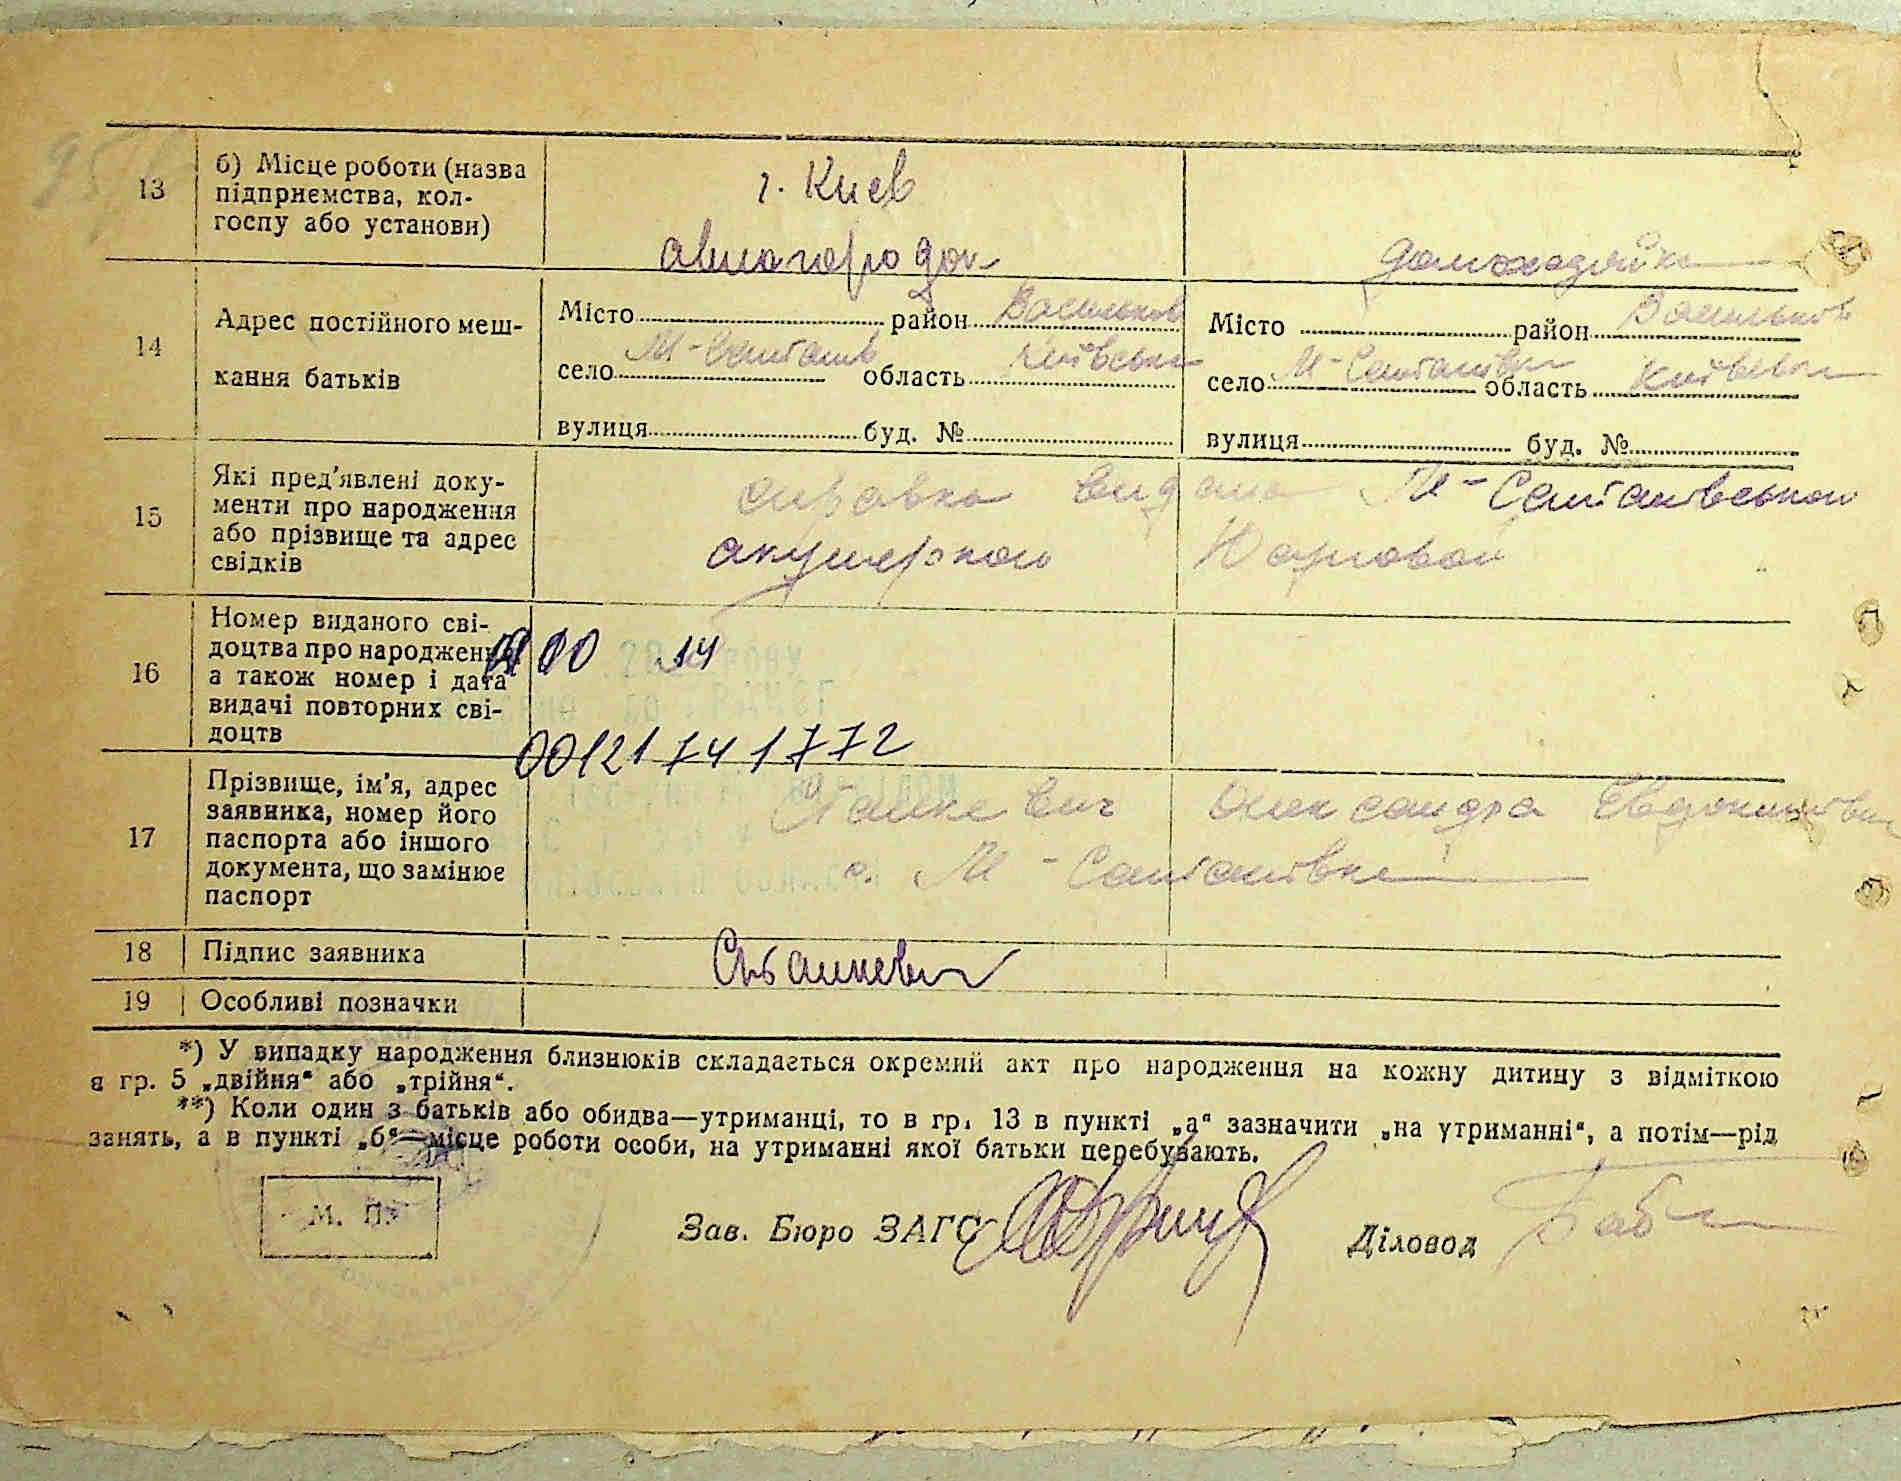 13
б) Місце роботи (назва
підприємства, кол-
госпу або установи)
г. Киев
авиагородок
домохозяйка
14
Адрес постійного меш-
кання батьків
Місто район Васильков
село М-Салтанів область Київська
вулиця буд. №
Місто район Васильков
село М-Салтанівка область Київська
вулиця буд. №
15
Які пред'явлені доку-
менти про народження
або прізвище та адрес
свідків
справка видана М-Салтанівською
акушеркою
16
Номер виданого сві-
доцтва про народження
а також номер і дата
видачі повторних сві-
доцтв
14
00121741772
17
Прізвище, ім'я, адрес
заявника, номер його
паспорта або іншого
документа, що замінює
паспорт
Станкевич Олександра Евдокимовна
с. М-Салтанівка
18
Підпис заявника
Станкевич
19
Особливі позначки
*) У випадку народження близнюків складається окремий акт про народження на кожну дитину з відміткою
в гр. 5 „двійня“ або „трійня“.
**) Коли один з батьків або обидва—утриманці, то в гр. 13 в пункті „а“ зазначити „на утриманні“, а потім—рід
занять, а в пункті „б“—місце роботи особи, на утриманні якої батьки перебувають.
М. П.
Зав. Бюро ЗАГС
Діловод